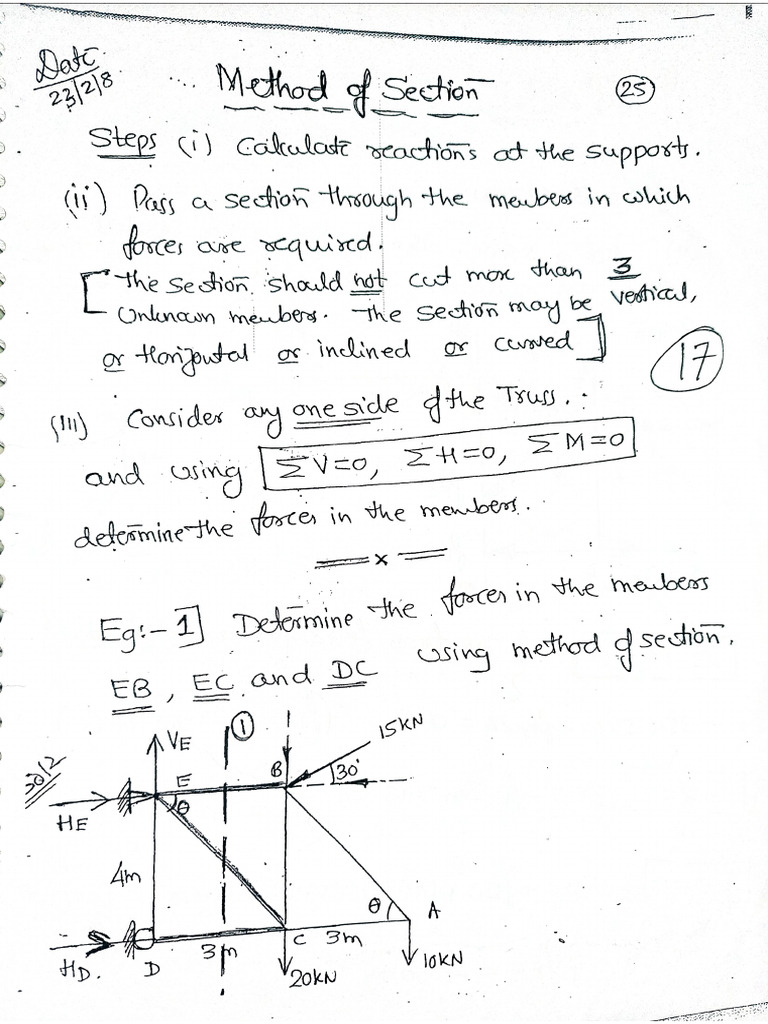 Date
23/2/8
Method of Section
25
Steps (i) Calculate reactions at the supports.
(ii) Pass a section through the members in which
forces are required.
[The section should not cut more than 3
Unknown members. The section may be vertical,
or Horizontal or inclined or curved]
17
(iii) Consider any one side of the Truss.
and using ΣV=0, ΣH=0, ΣM=0
determine the forces in the members.
x
Eg:- 1] Determine the forces in the members
EB, EC and DC using method of section.
VE
1
15KN
B
30°
E
θ
HE
4m
θ
A
HD.
D
3m
C
3m
20KN
10KN